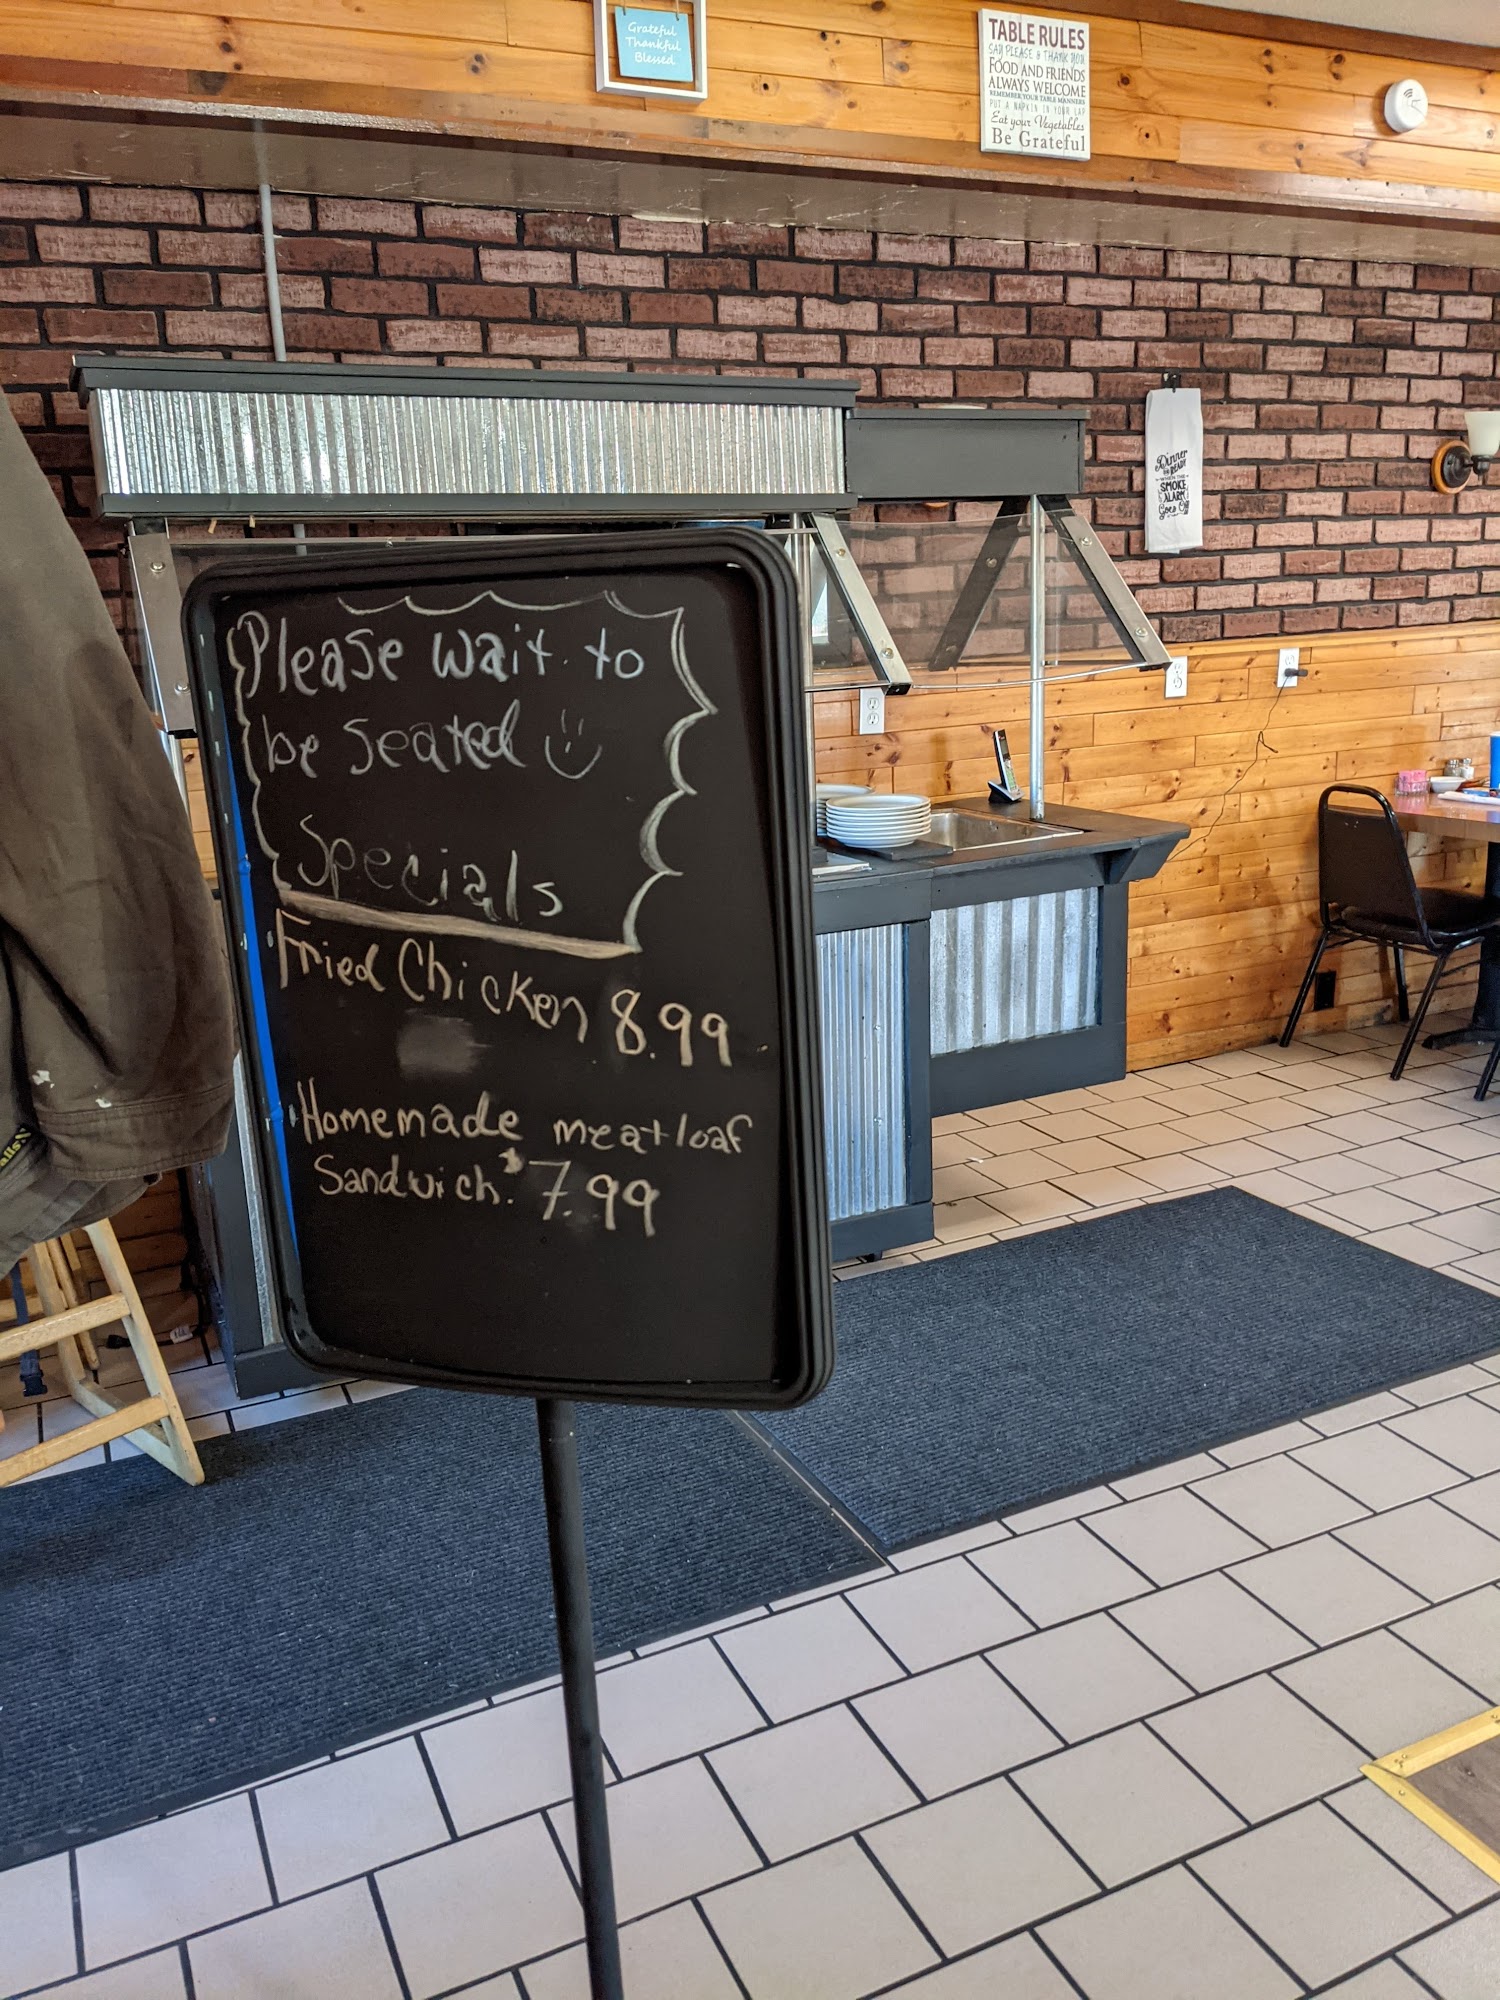 Grateful
Thankful
Blessed
TABLE RULES
SAY PLEASE & THANK YOU
FOOD AND FRIENDS
ALWAYS WELCOME
REMEMBER YOUR TABLE MANNERS
PUT A NAPKIN IN YOUR LAP
Eat your Vegetables
Be Grateful
Dinner
READY
WHEN THE
SMOKE
ALARM
Goes Off
Please wait to
be seated
Specials
Fried Chicken 8.99
Homemade meatloaf
Sandwich. $7.99